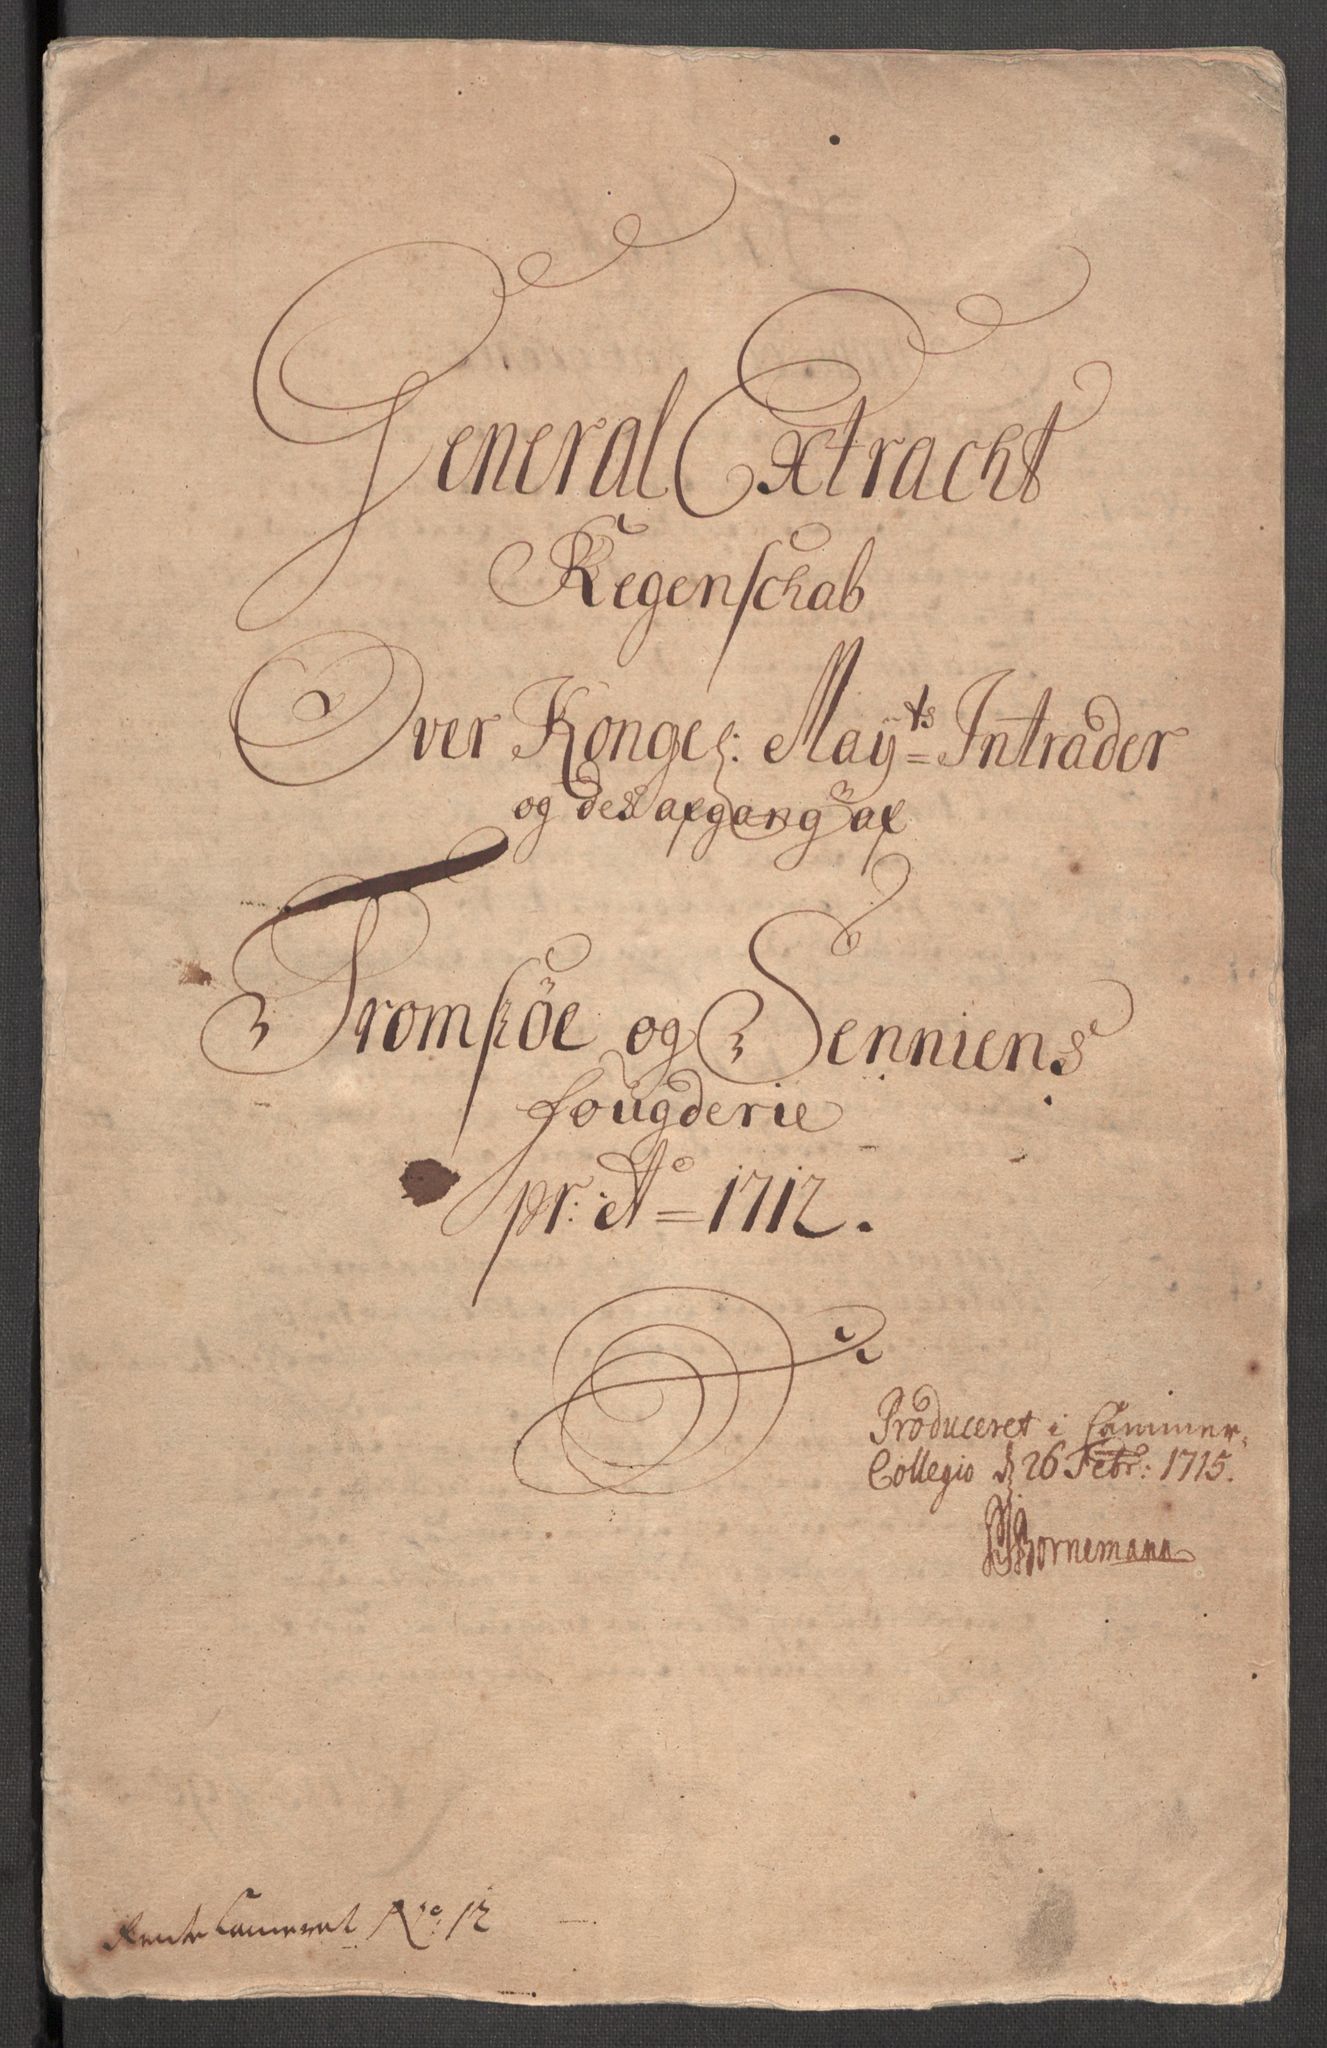 General Extracht
Regenschab
Over Kongel: Mayts Intrader
og des afgang af
Tromsöe og Senniens
fougderie
pr: Ao 1712.
Produceret i Cammer-
Collegio d. 26 Febr: 1715.
Bornemann
Rente Cammeret No: 12